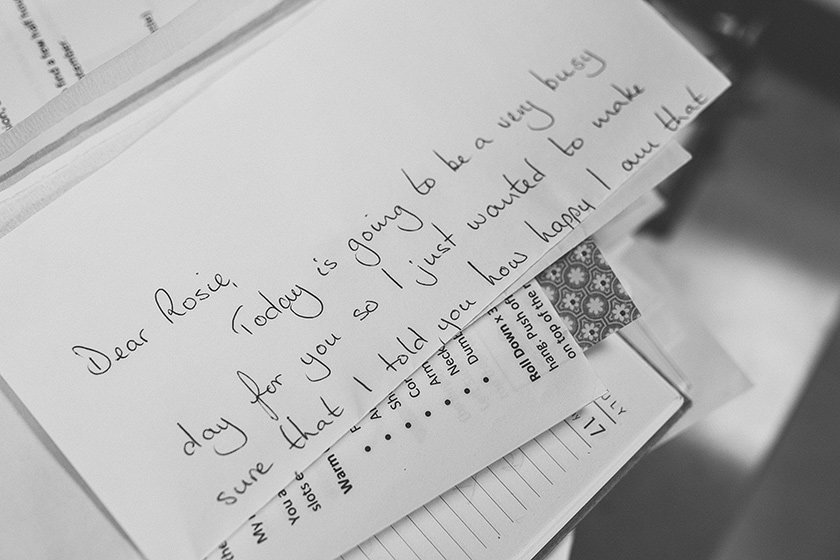 Dear Rosie,
Today is going to be a very busy
day for you so I just wanted to make
sure that I told you how happy I am that
find a few half
Roll Down x
hang. Push
on top of the
Neck
Arm
Warm
You a
slots
My
17